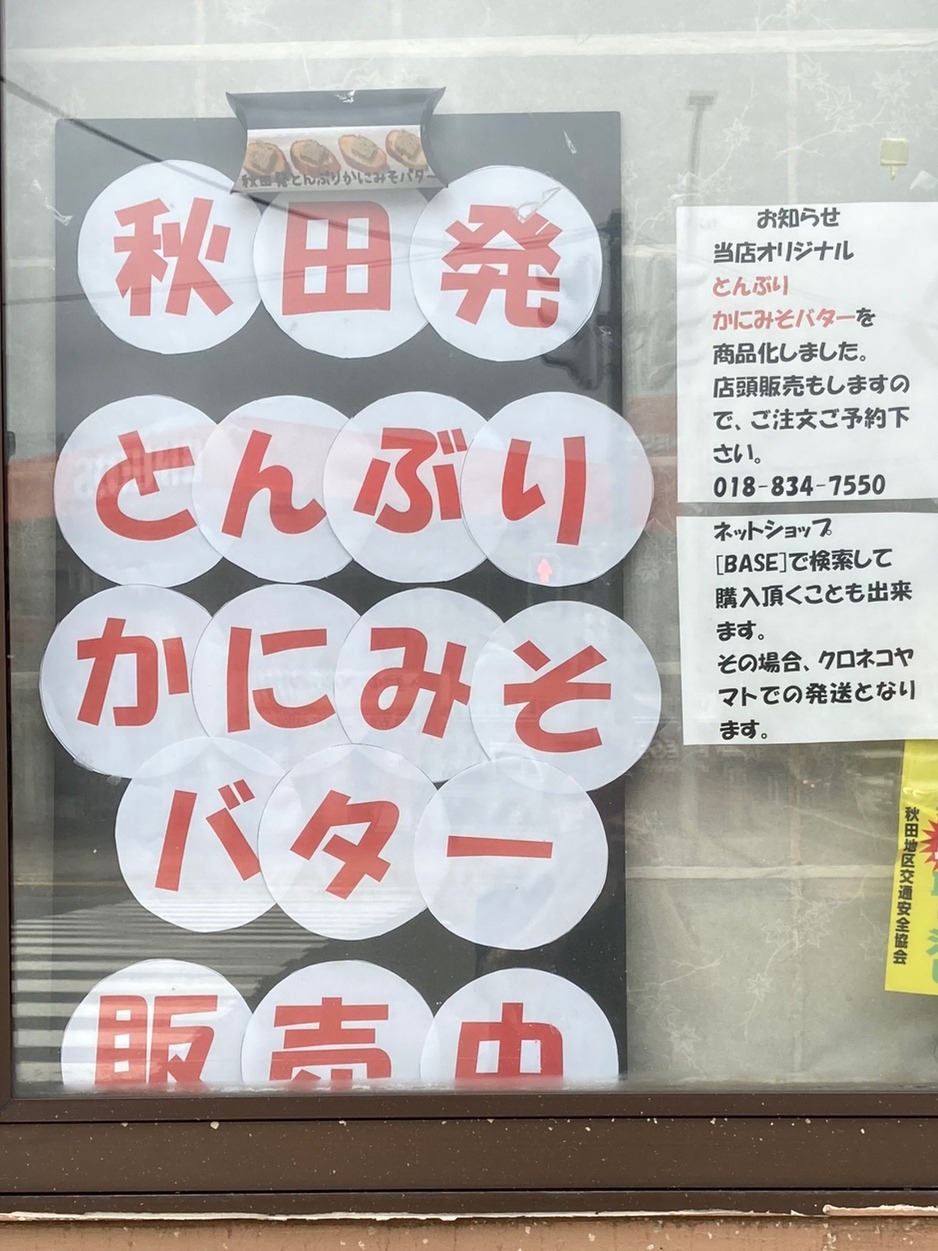 秋田発とんぶりかにみそバター
秋田発
とんぶり
かにみそ
バター
販売中
お知らせ
当店オリジナル
とんぶり
かにみそバターを
商品化しました。
店頭販売もしますの
で、ご注文ご予約下
さい。
018-834-7550
ネットショップ
[BASE]で検索して
購入頂くことも出来
ます。
その場合、クロネコヤ
マトでの発送となり
ます。
秋田地区交通安全協会